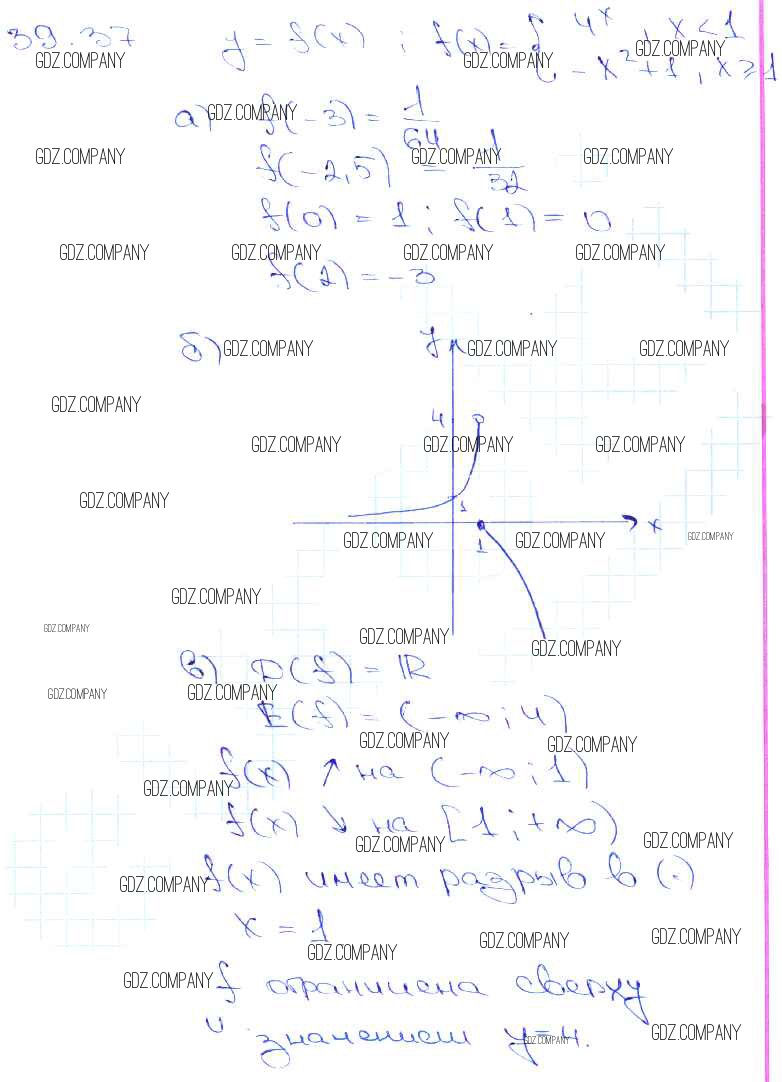 39.37 y = f(x) ; f(x) = { 4^x , x < 1
-x²+1 , x ≥ 1
GDZ.COMPANY GDZ.COMPANY GDZ.COMPANY
а) f(-3) = 1/64
GDZ.COMPANY
f(-2,5) = 1/32
GDZ.COMPANY GDZ.COMPANY GDZ.COMPANY
f(0) = 1 ; f(1) = 0
GDZ.COMPANY GDZ.COMPANY GDZ.COMPANY GDZ.COMPANY
f(2) = -3
б) GDZ.COMPANY y GDZ.COMPANY GDZ.COMPANY
GDZ.COMPANY
4
GDZ.COMPANY GDZ.COMPANY GDZ.COMPANY
GDZ.COMPANY 1
x
GDZ.COMPANY 1 GDZ.COMPANY GDZ.COMPANY
GDZ.COMPANY
GDZ.COMPANY GDZ.COMPANY
GDZ.COMPANY
в) D(f) = ℝ
GDZ.COMPANY GDZ.COMPANY
E(f) = (-∞ ; 4)
GDZ.COMPANY GDZ.COMPANY
f(x) ↑ на (-∞ ; 1)
GDZ.COMPANY
f(x) ↓ на [1 ; +∞)
GDZ.COMPANY GDZ.COMPANY
f(x) имеет разрыв в (·)
GDZ.COMPANY
x = 1
GDZ.COMPANY GDZ.COMPANY GDZ.COMPANY
GDZ.COMPANY
f ограничена сверху
значением y = 4.
GDZ.COMPANY GDZ.COMPANY